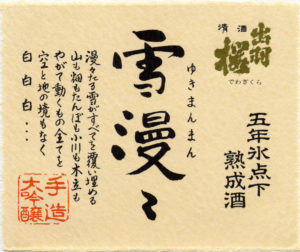 清酒
出羽桜
でわざくら
五年氷点下
熟成酒
雪漫々
ゆきまんまん
漫々たる雪がすべてを覆い埋める
山も畑もたんぼも小川も木立も
やがて動くもの全てを
空と地の境もなく
白白白・・・
手造
大吟醸